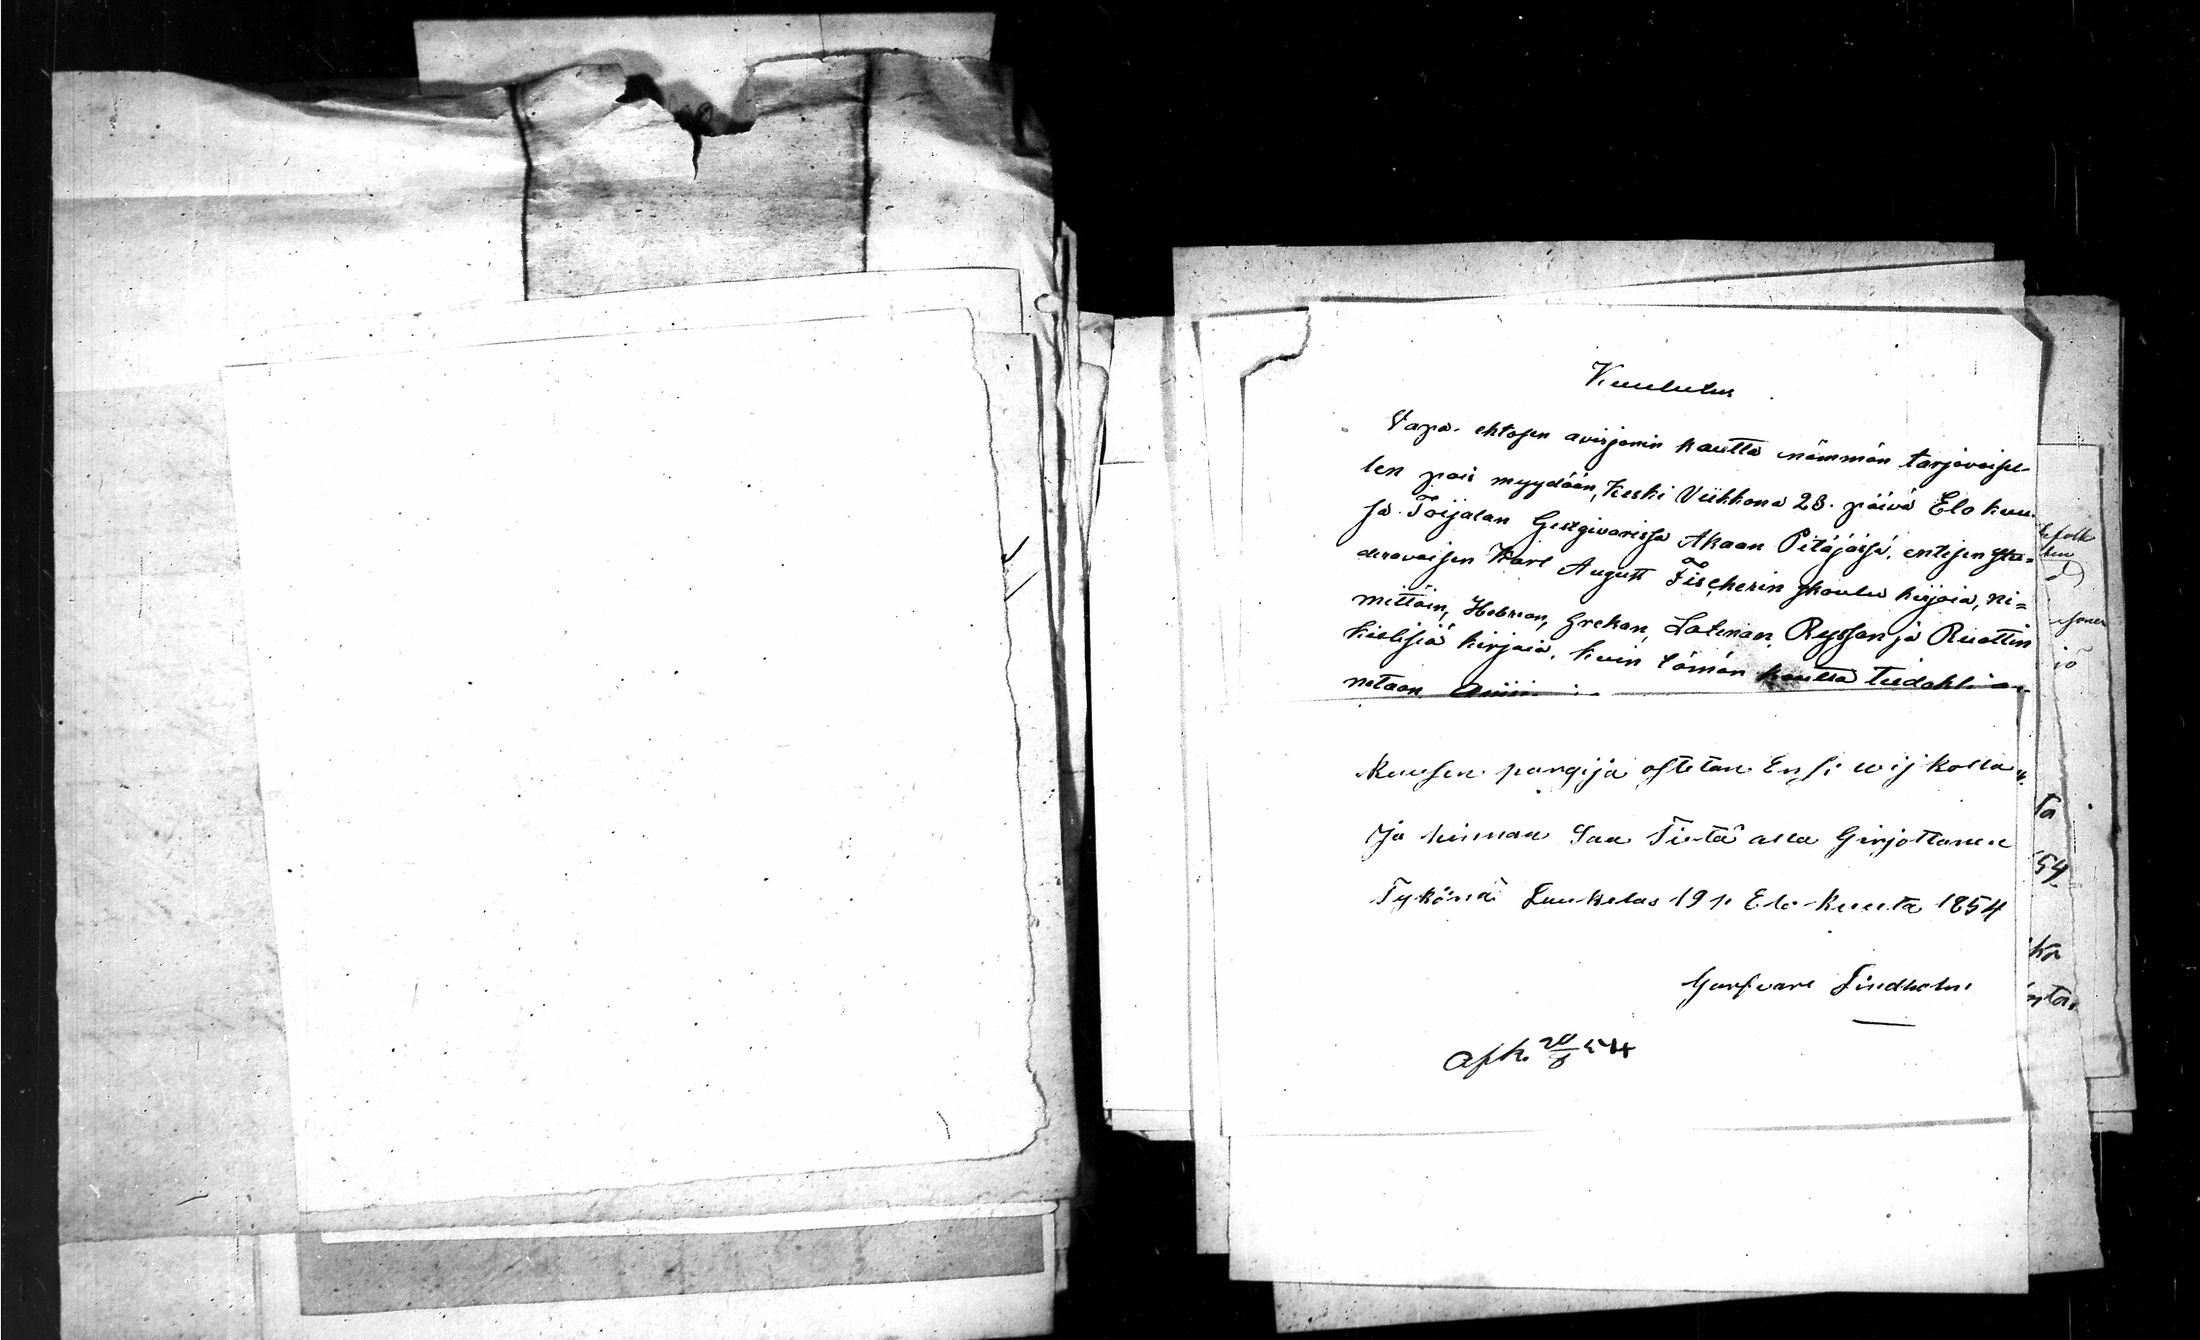 Kuulutus
Vapa-ehtosen avisjonin kautta nämmän tarjovaisel-
len pois myydään, Keski Viikkona 23. päivä Elo kuu-
sa Toijalan Gestgivarissa Akaan Pitäjässä, entisen
Karl August Fischerin skoulu kirjoia, ni=
mittäin, Hebrean, Grekan, Latinan, Ryssan ja Ruottin
kielisiä kirjaia, kuin tämän kautta tiedoksi an-
netaan
Kuusen pargija ostetan Ensi wijkolla
Ja hinnan Saa Tietä alla Girjottanen
Tykönä Laukelas 19 p. Elo-kuuta 1854
Garfvare Lindholm
Afk. 20/8 54
ta
54
ka